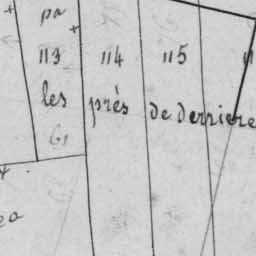 pa
113 114 115
les prés de derriere
61